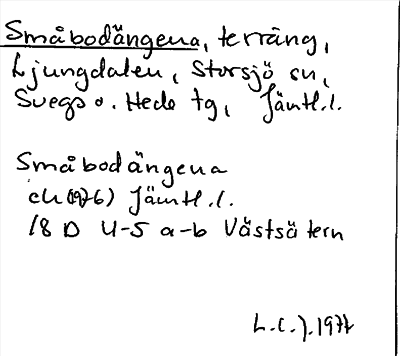 Småbodängena, terräng,
Ljungdalen, Storsjö sn,
Svegs o. Hede tg, Jämtl.l.
Småbodängena
ek (1976) Jämtl.l.
18 D 4-5 a-b Västsätern
L.C.J. 1977